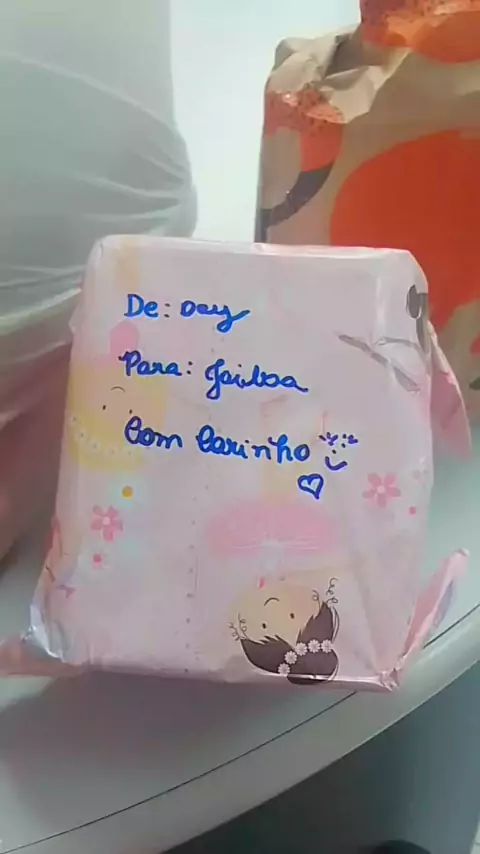 De: Day
Para: Jailsa
Com Carinho